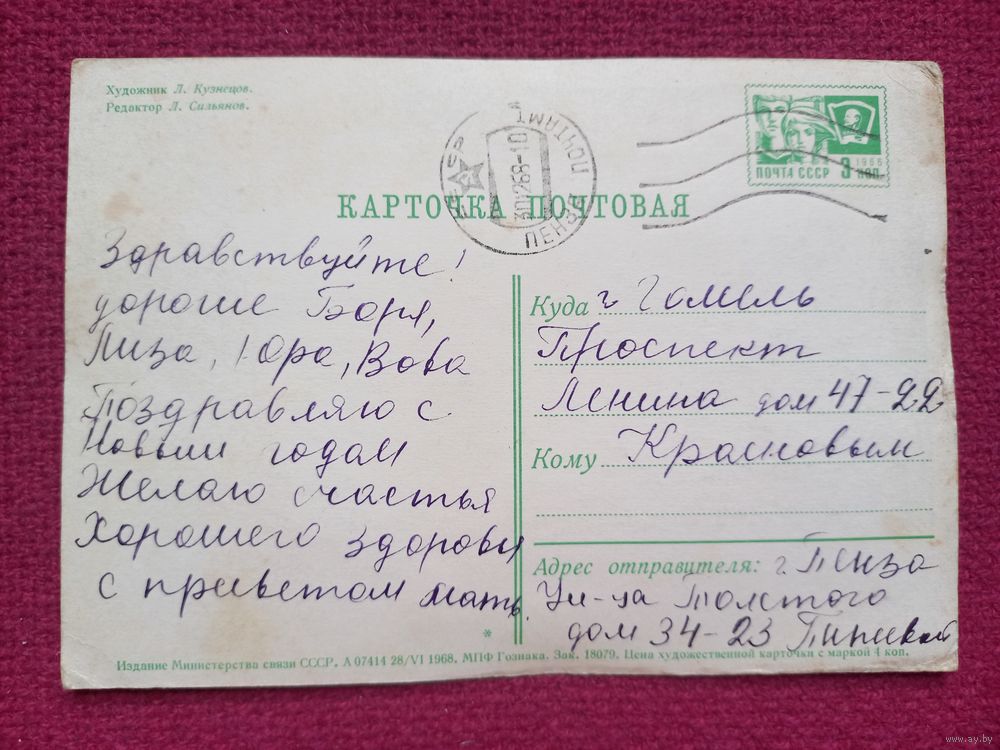 Художник Л. Кузнецов.
Редактор Л. Сильянов.
СССР
ПЕНЗА ПОЧТАМТ
ПОЧТА СССР
1966
3 коп.
КАРТОЧКА ПОЧТОВАЯ
Здравствуйте!
дорогие Боря,
Лиза, Юра, Вова
Поздравляю с
Новым годам
Желаю счастья
Хорошего здоровя
с приветом мать.
Куда г Гомель
Проспект
Ленина дом 47-22
Кому Красновым
Адрес отправителя: г. Пенза
Ул-ца Толстого
дом 34-23
*
Издание Министерства связи СССР. А 07414 28/VI 1968. МПФ Гознака. Зак. 18079. Цена художественной карточки с маркой 4 коп.
www.ay.by